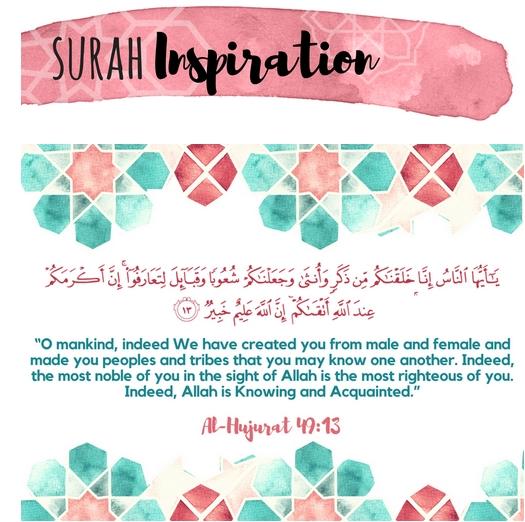 SURAH Inspiration
يَـٰٓأَيُّهَا ٱلنَّاسُ إِنَّا خَلَقْنَـٰكُم مِّن ذَكَرٍ وَأُنثَىٰ وَجَعَلْنَـٰكُمْ شُعُوبًا وَقَبَآئِلَ لِتَعَارَفُوٓا۟ ۚ إِنَّ أَكْرَمَكُمْ
عِندَ ٱللَّهِ أَتْقَىٰكُمْ ۚ إِنَّ ٱللَّهَ عَلِيمٌ خَبِيرٌ ١٣
“O mankind, indeed We have created you from male and female and
made you peoples and tribes that you may know one another. Indeed,
the most noble of you in the sight of Allah is the most righteous of you.
Indeed, Allah is Knowing and Acquainted.”
Al-Hujurat 49:13